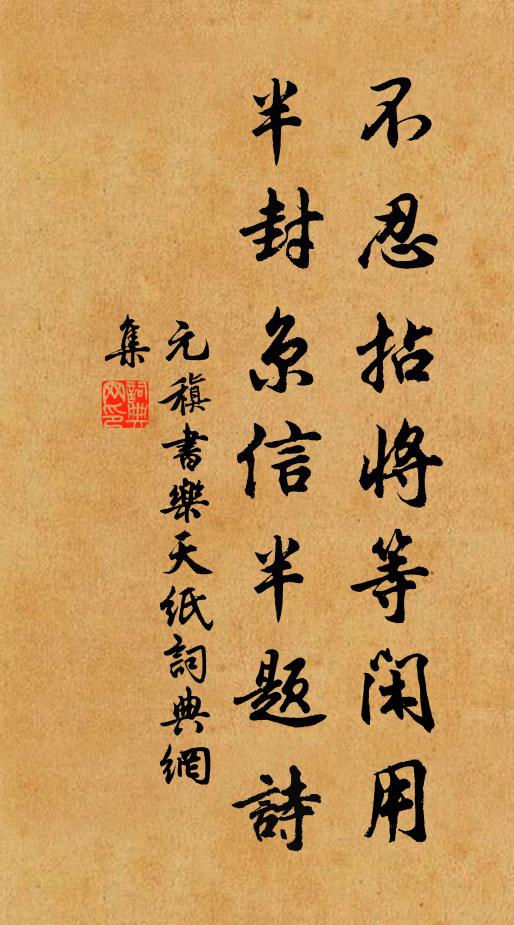 不忍拈將等閑用
半封京信半題詩
元稹書樂天紙詞典網
集
詞典網印